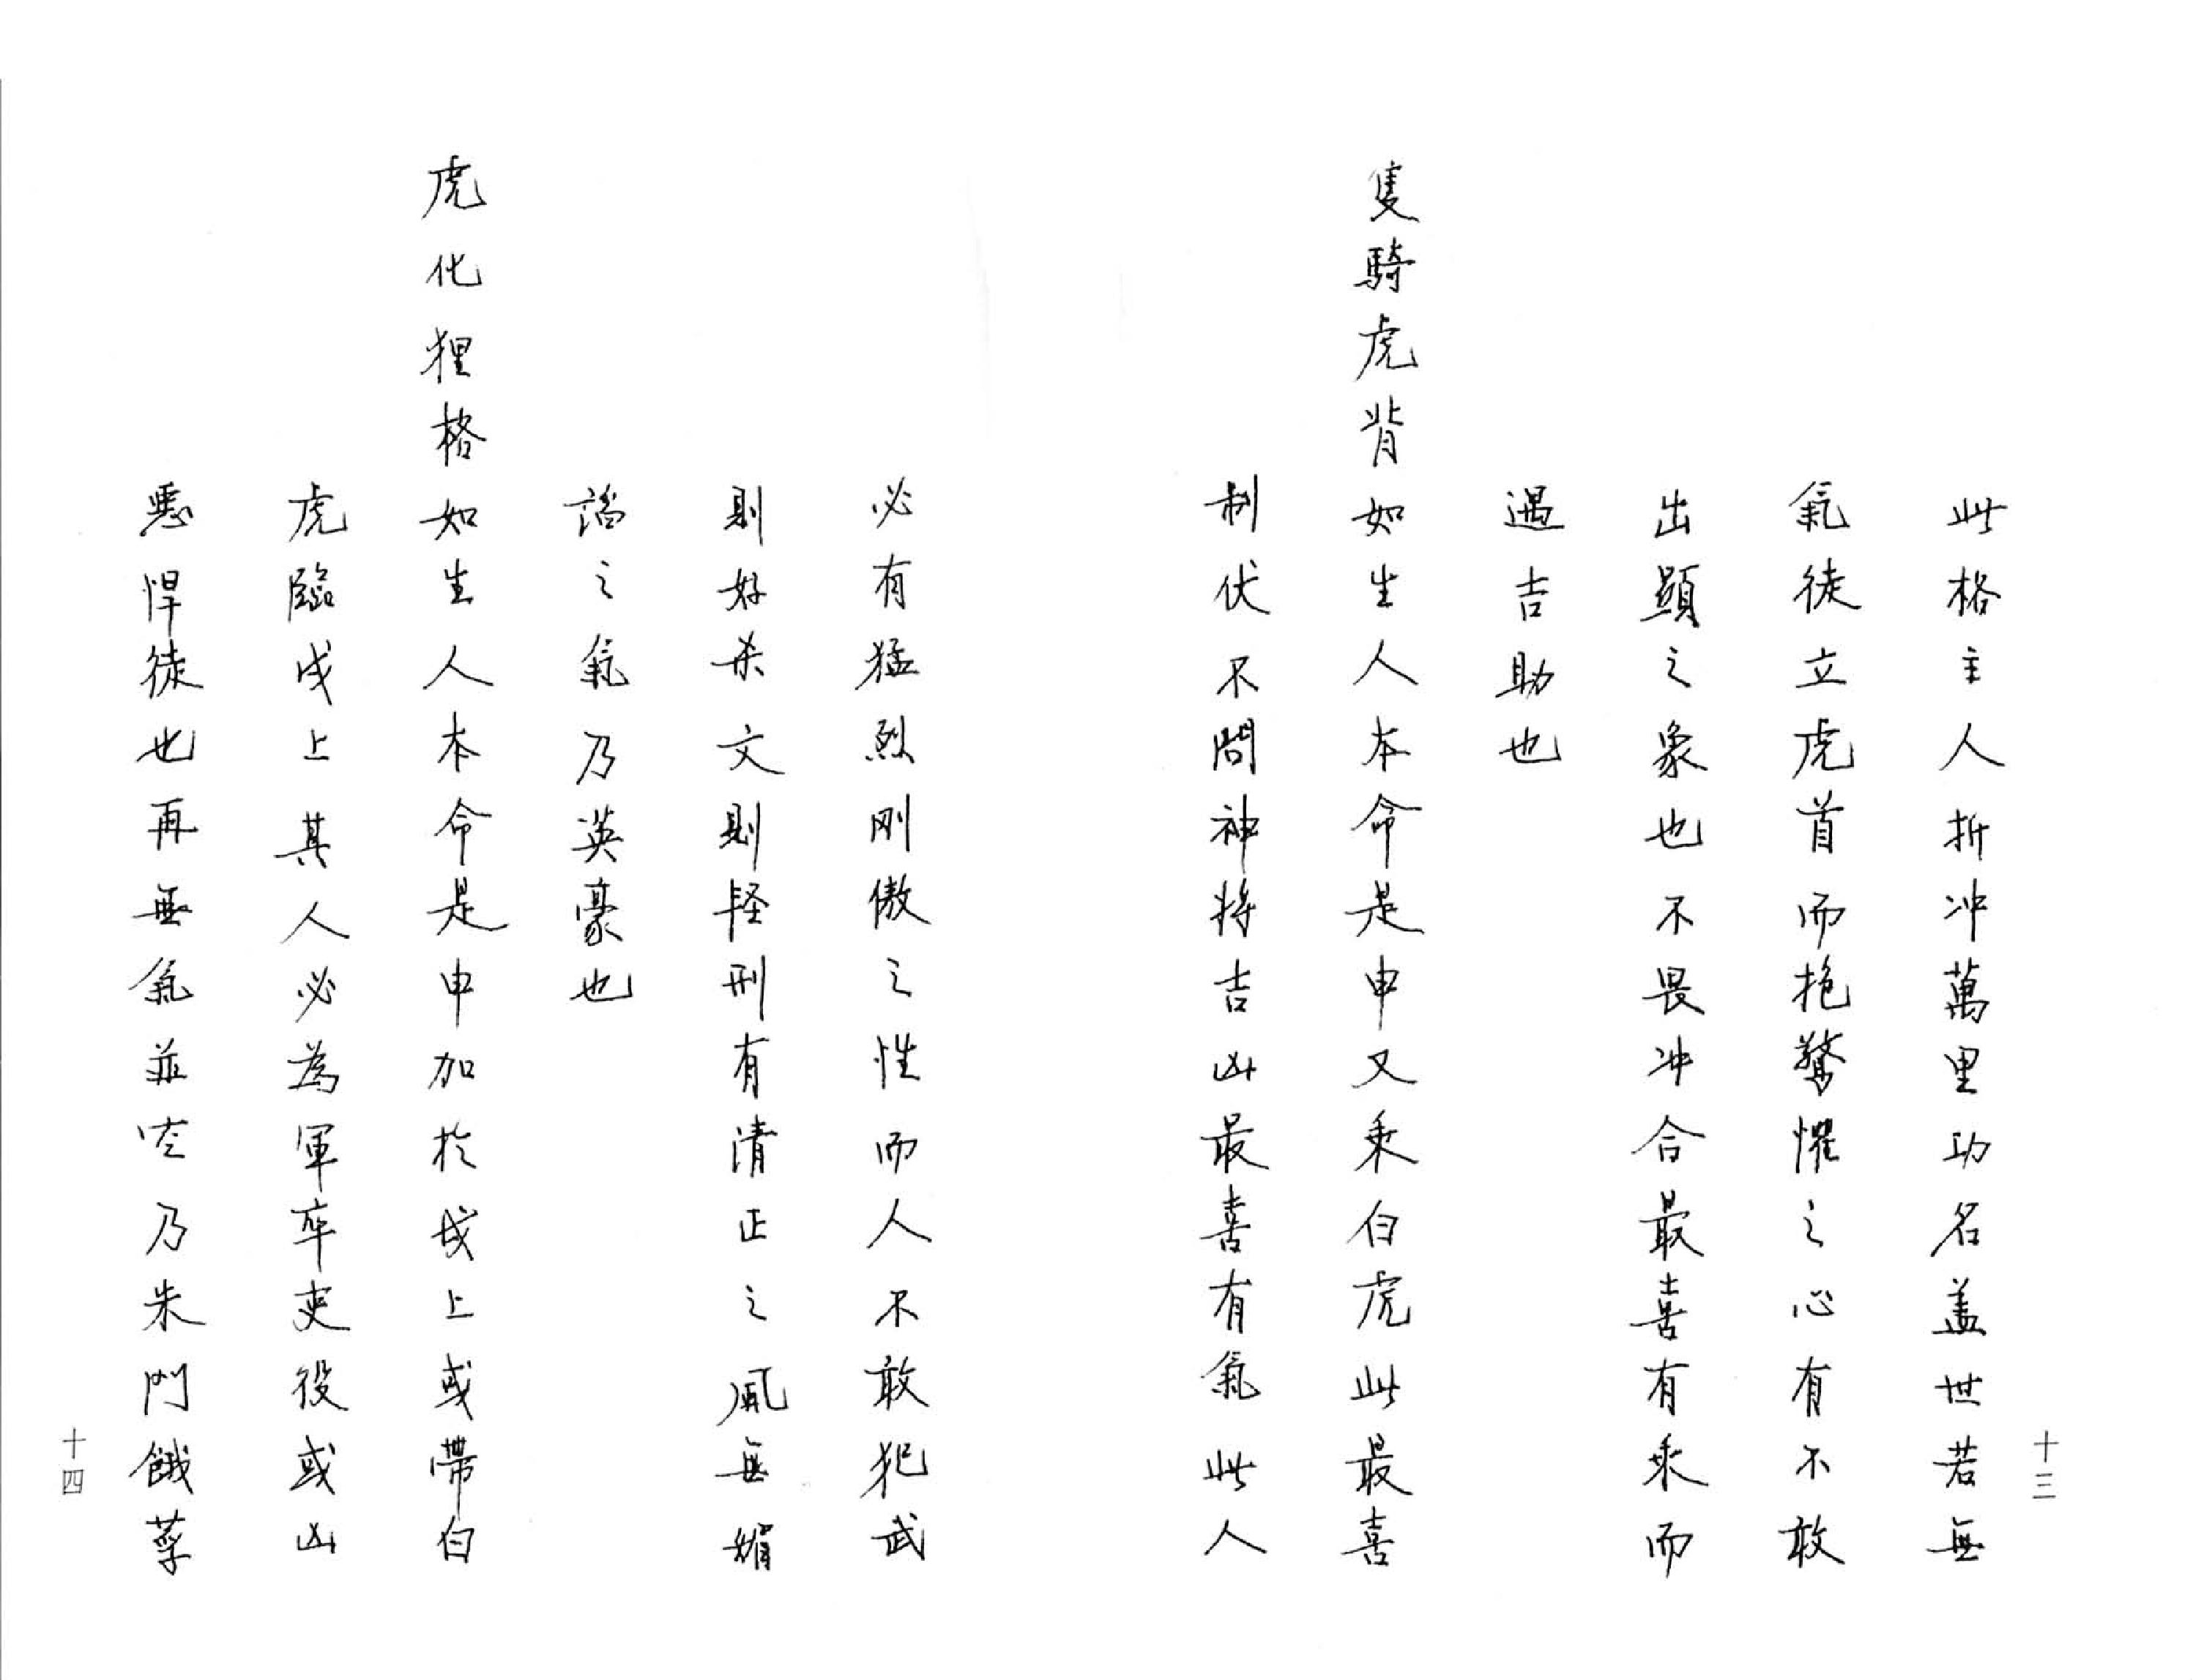 十三
此格主人折冲萬里功名盖世若無
氣徒立虎首而抱驚懼之心有不敢
出顕之象也不畏冲合最喜有乘而
遇吉助也
隻騎虎背如生人本命是申又乘白虎此最喜
制伏不問神將吉凶最喜有氣此人
必有猛烈刚傲之性而人不敢犯武
則好杀文則怪刑有清正之風無媚
謟之氣乃英豪也
虎化狸格如生人本命是申加於戌上或帶白
虎臨戌上其人必為軍卒吏役或凶
悪悍徒也再無氣並空乃朱門餓莩
十四